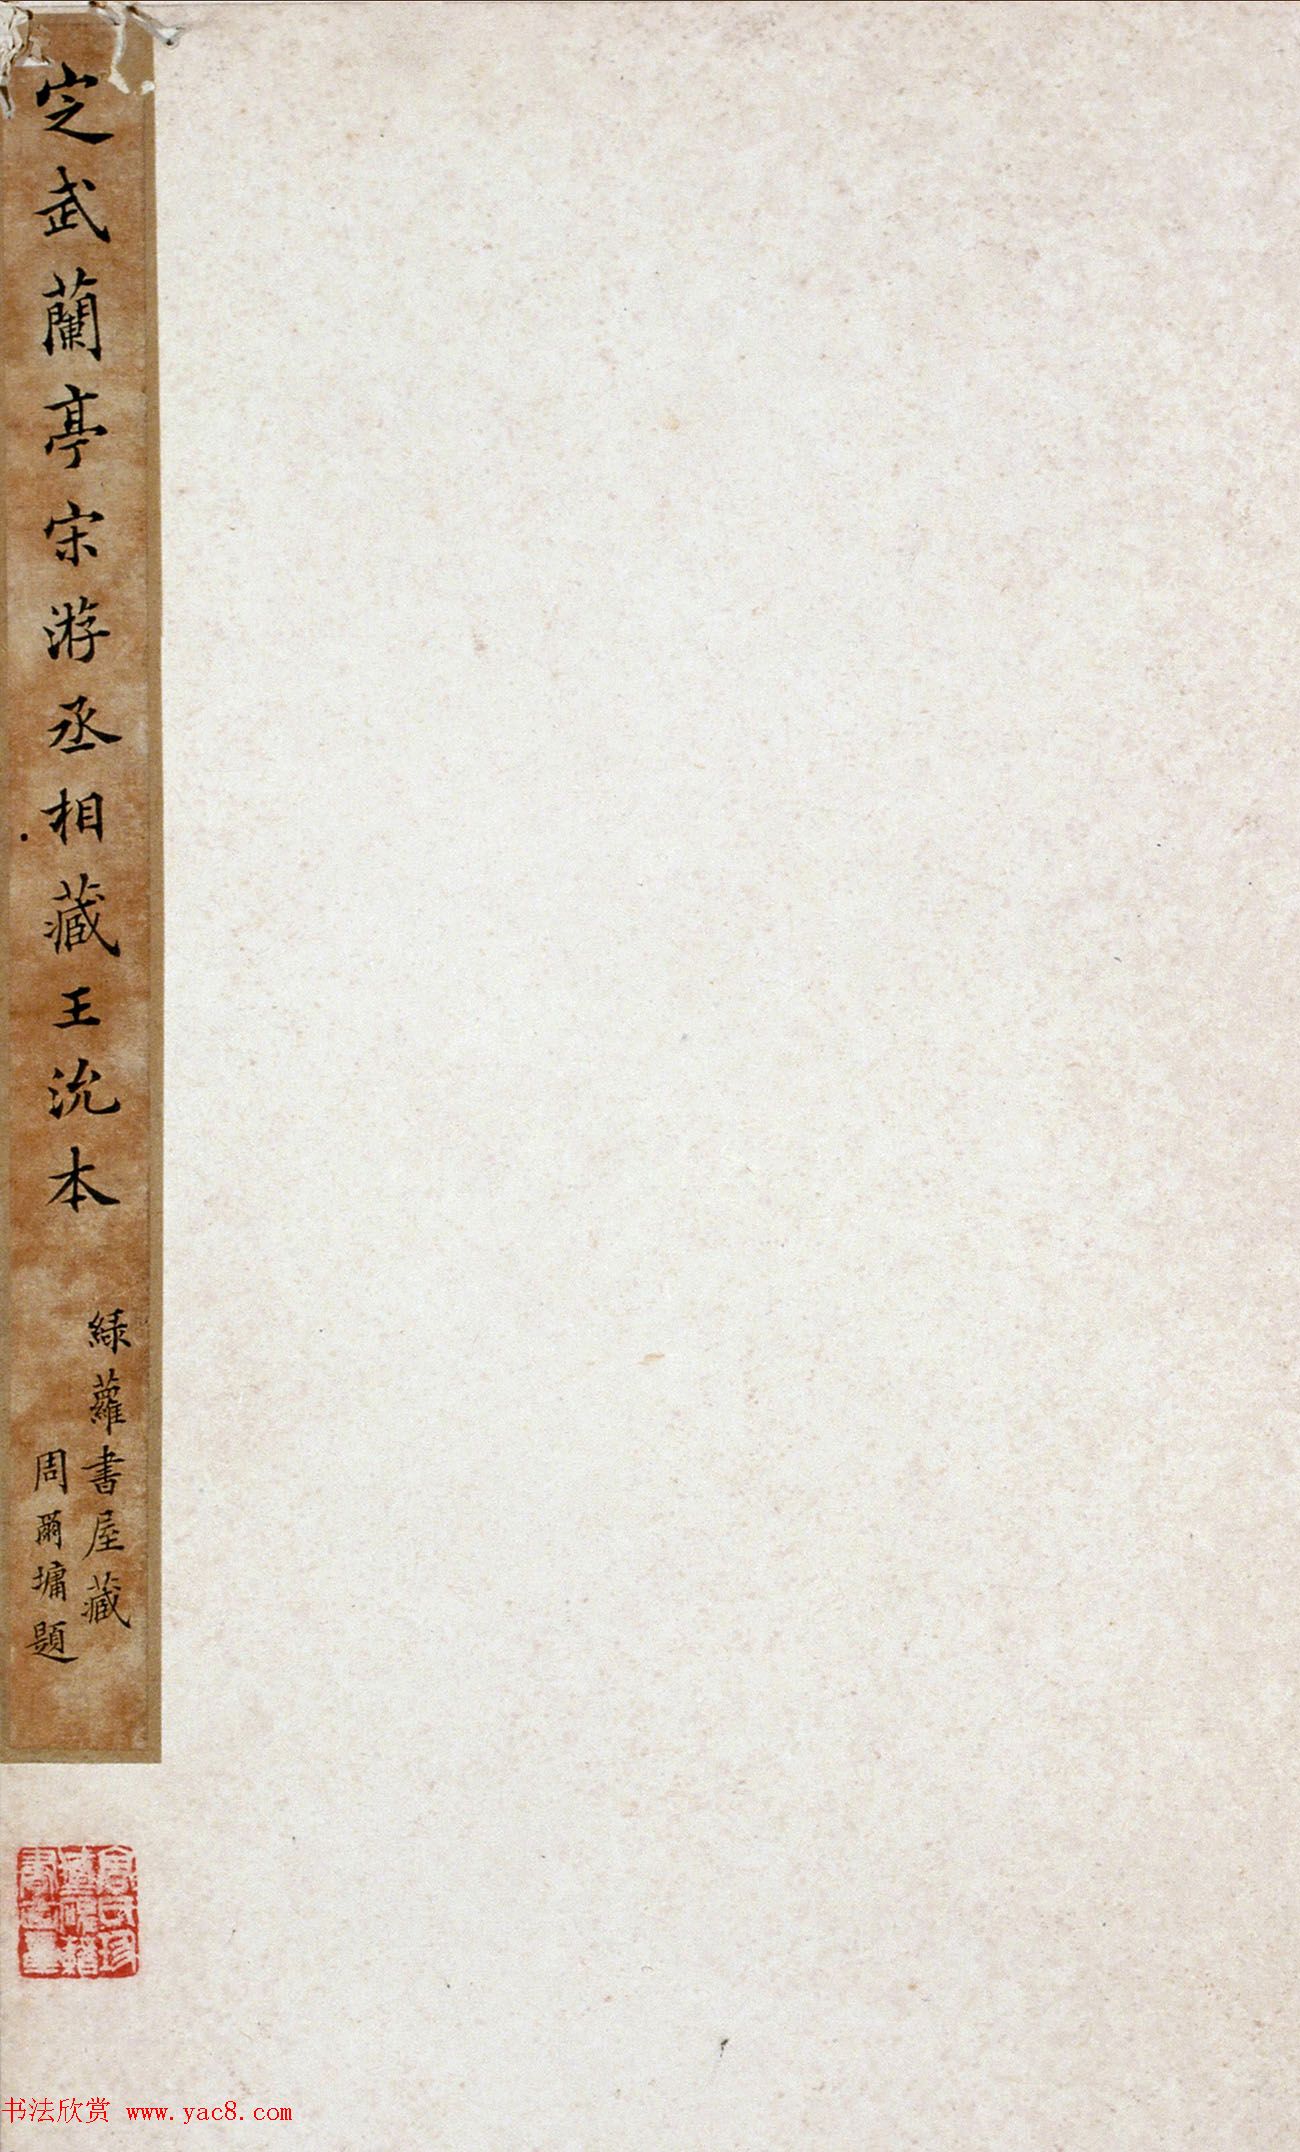 定武蘭亭宋游丞相藏王沇本
綠蘿書屋藏
周爾墉題
书法欣赏 www.yac8.com